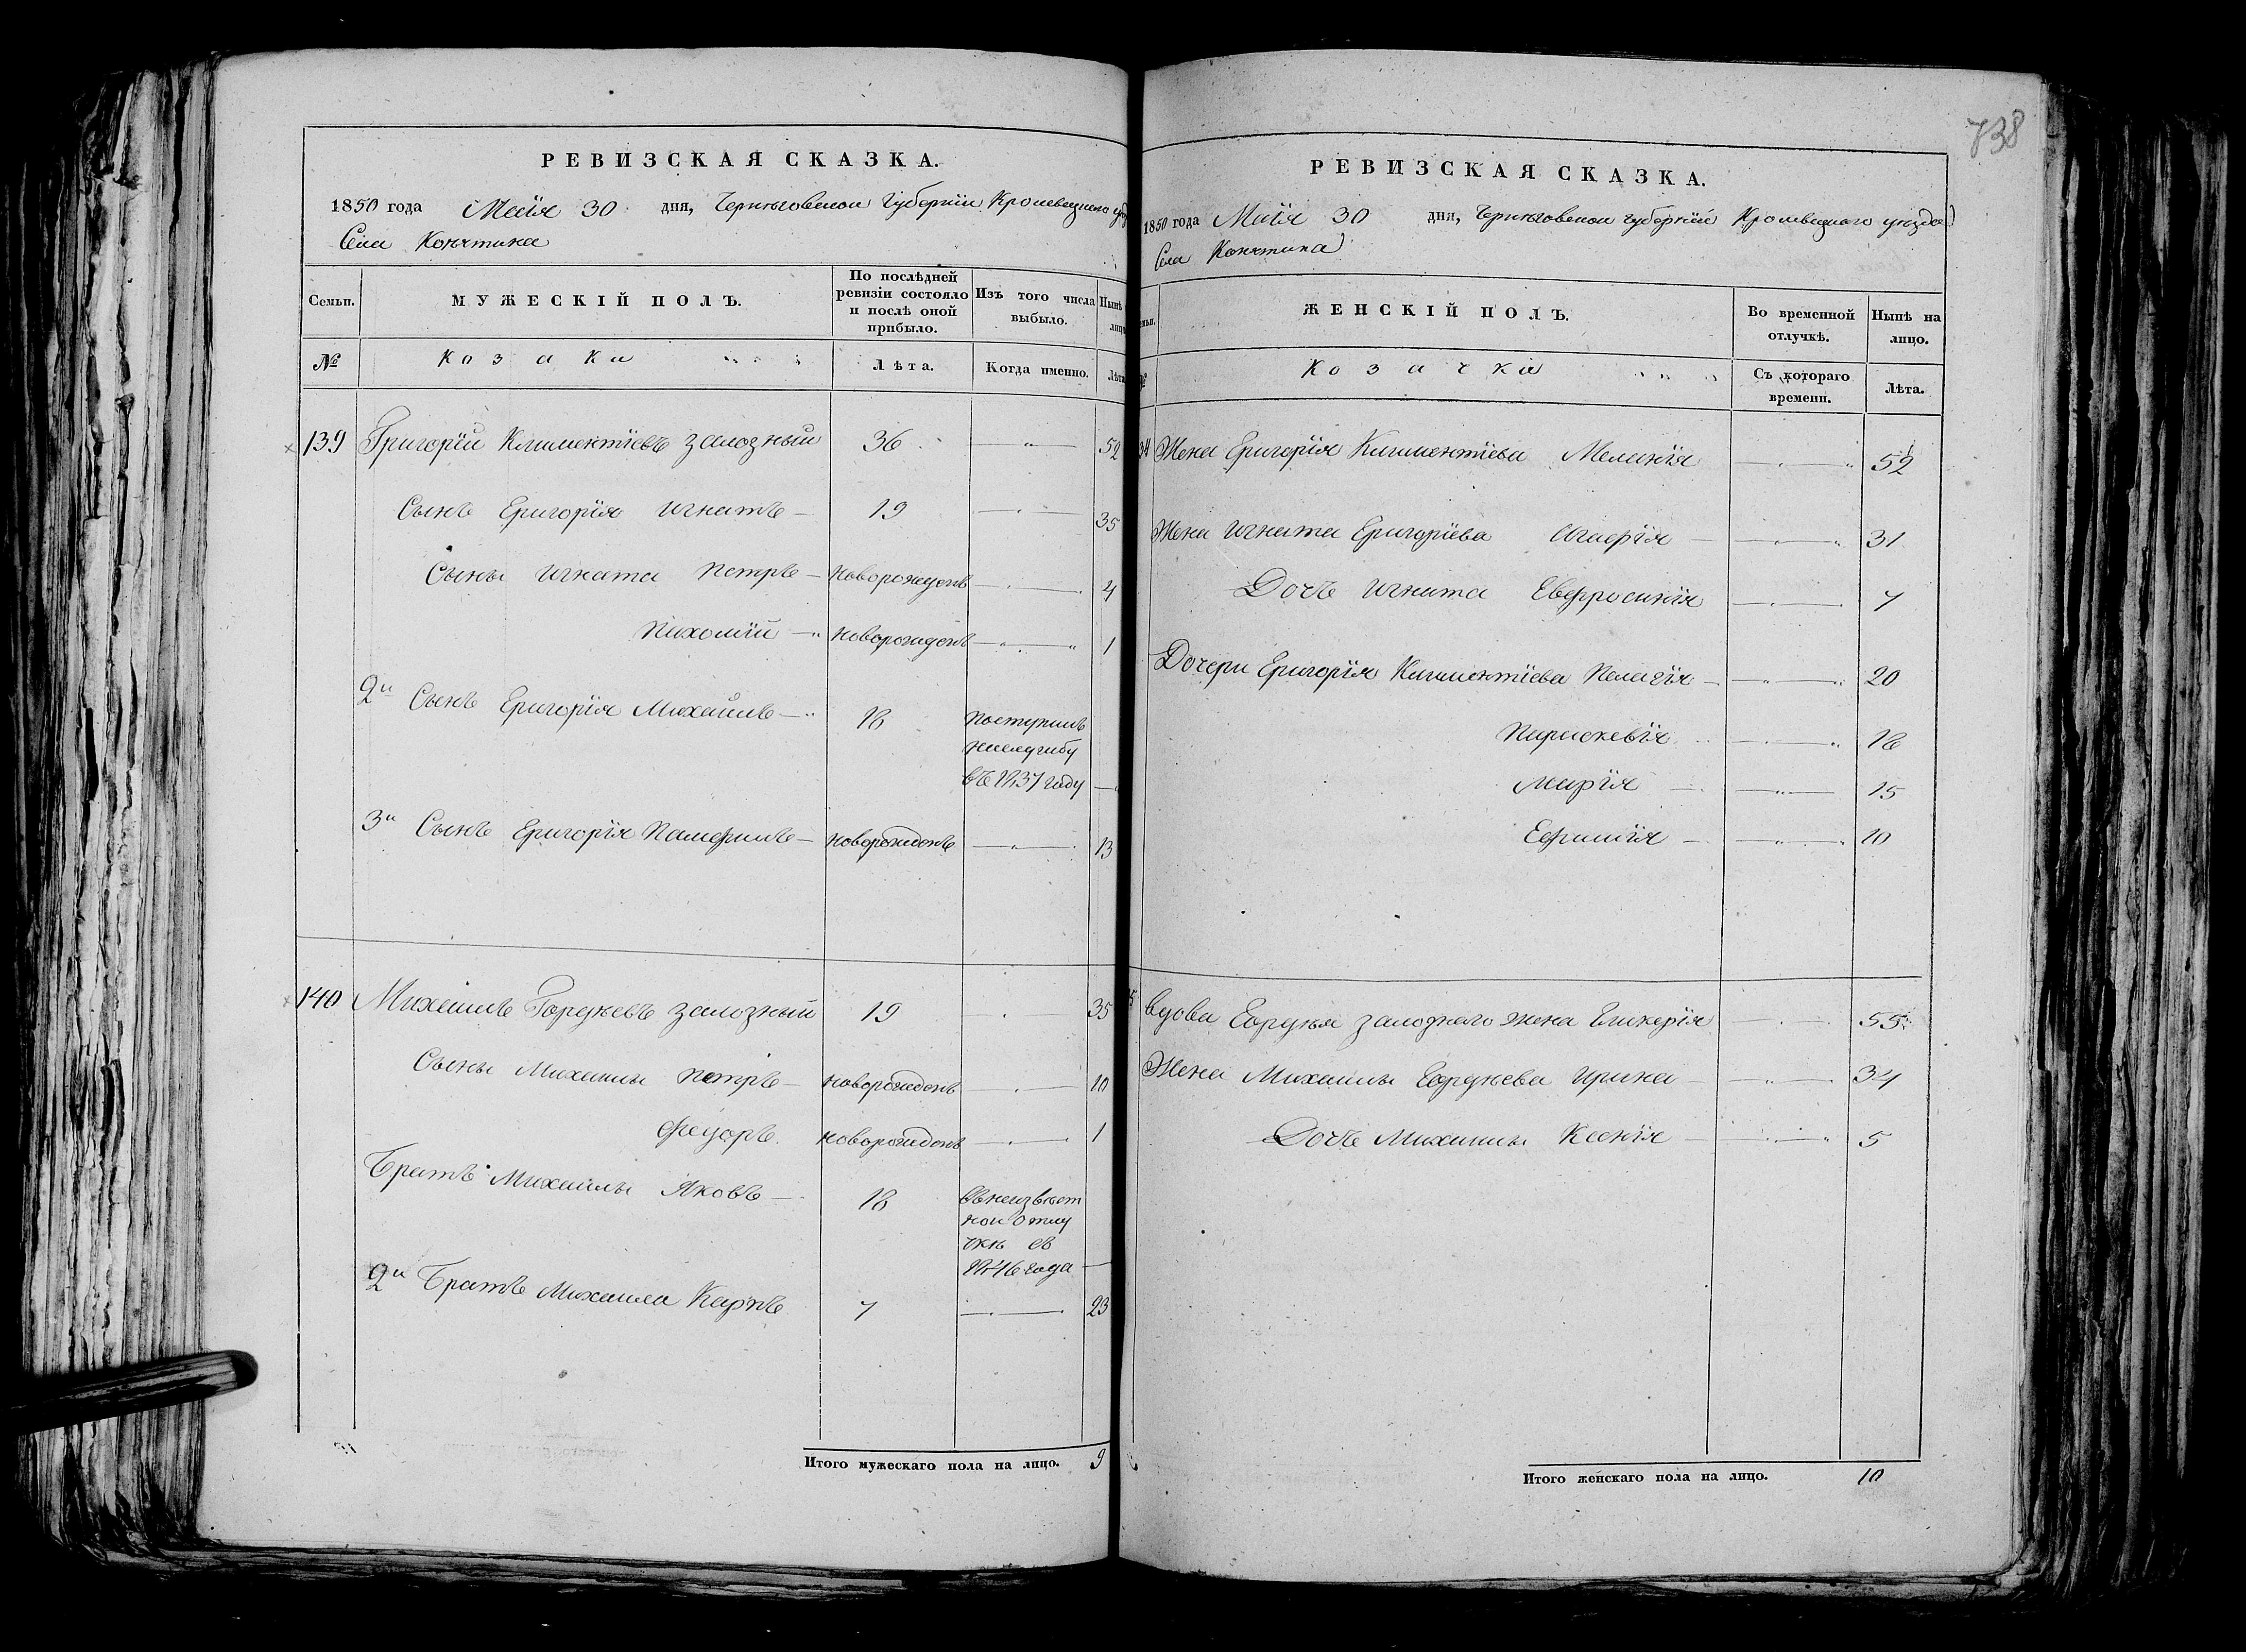 738
РЕВИЗСКАЯ СКАЗКА.
1850 года Маія 30 дня, Черниговской губерніи Кролевецкаго
Села Конятина
Семьи.
МУЖЕСКІЙ ПОЛЪ.
По послѣдней ревизіи состояло и послѣ оной прибыло.
Изъ того числа выбыло.
Нынѣ
№
Козаки
Лѣта.
Когда именно.
Лѣта
139 Григорій Климентіевъ Залозный 36 52
Сынъ Григорія Игнатъ 19 35
Сыны Игната Петръ новорожденъ 4
Пахомій новорожденъ 1
2й Сынъ Григорія Михаилъ 18 поступилъ
на службу
въ 1837 году
3й Сынъ Григорія Памфилъ новорожденъ 13
140 Михаилъ Гордѣевъ Залозный 19 35
Сыны Михаилы Петръ новорожденъ 10
Федоръ новорожденъ 1
Братъ Михаилы Яковъ 18 въ неизвѣст
ной отлу
чкѣ съ
1846 года
2й Братъ Михаила Карпъ 7 23
Итого мужескаго пола на лицо. 9
РЕВИЗСКАЯ СКАЗКА.
1850 года Маія 30 дня, Черниговской губерніи Кролевецкаго уѣзда
Села Конятина
ЖЕНСКІЙ ПОЛЪ.
Во временной отлучкѣ.
Нынѣ на лицо.
№
Козачки
Съ котораго времени.
Лѣта.
Жена Григорія Климентіева Меланія 52
Жена Игната Григоріева 31
Дочь Игната Евфросинія 7
Дочери Григорія Климентіева Пелагія 20
Параскевія 18
Марія 15
Ефимія 10
Вдова Гордѣя Залознаго жена Гликерія 55
Жена Михаилы Гордѣева Ирина 34
Дочь Михаилы Ксенія 5
Итого женскаго пола на лицо. 10